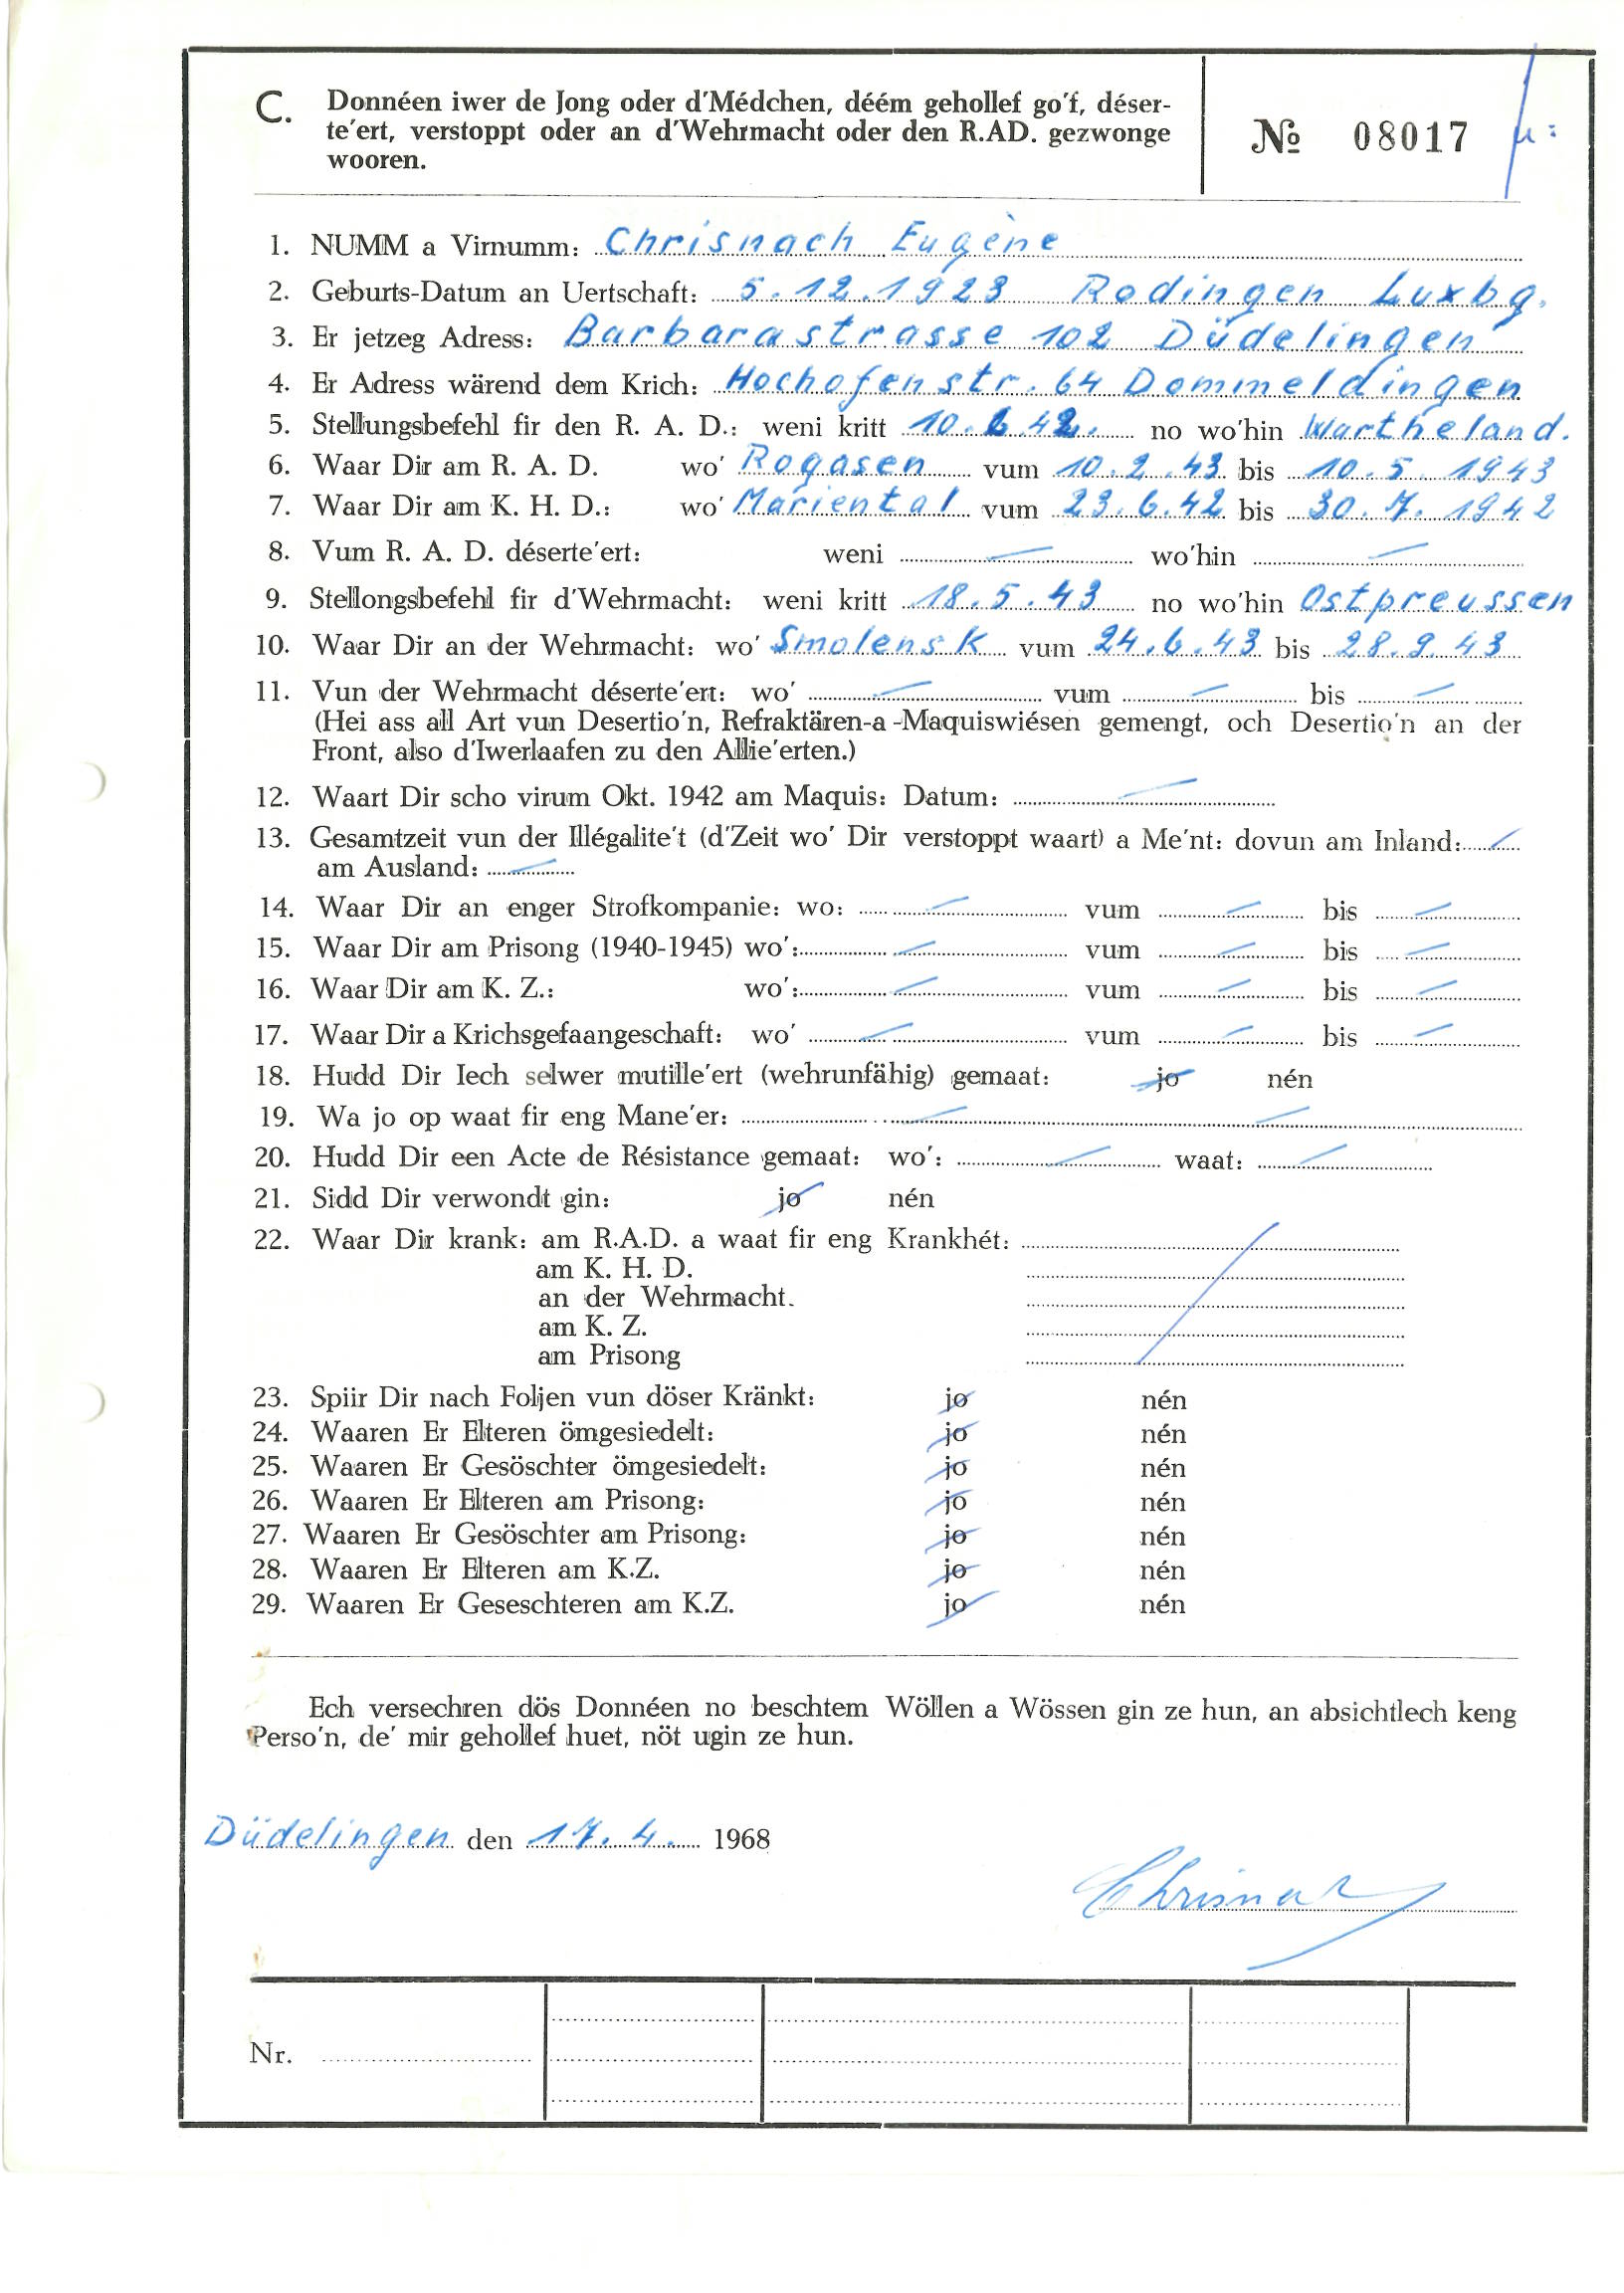 C. Donnéen iwer de Jong oder d'Médchen, déém gehollef go'f, déser-
te'ert, verstoppt oder an d'Wehrmacht oder den R.AD. gezwonge
wooren.
№ 08017
1. NUMM a Virnumm: Chrisnach Eugène
2. Geburts-Datum an Uertschaft: 5.12.1923 Rodingen Luxbg.
3. Er jetzeg Adress: Barbarastrasse 102 Düdelingen
4. Er Adress wärend dem Krich: Hochofenstr. 64 Dommeldingen
5. Stellungsbefehl fir den R. A. D.: weni kritt 10. 42. no wo'hin Wartheland.
6. Waar Dir am R. A. D. wo' Rogasen vum 10.2.43 bis 10.5.1943
7. Waar Dir am K. H. D.: wo' Mariental vum 23.6.42 bis 30.7.1942
8. Vum R. A. D. déserte'ert: weni — wo'hin —
9. Stellongsbefehl fir d'Wehrmacht: weni kritt 18.5.43 no wo'hin Ostpreussen
10. Waar Dir an der Wehrmacht: wo' Smolensk vum 24.6.43 bis 28.9.43
11. Vun der Wehrmacht déserte'ert: wo' — vum — bis —
(Hei ass all Art vun Desertio'n, Refraktären-a-Maquiswiésen gemengt, och Desertio'n an der
Front, also d'Iwerlaafen zu den Allie'erten.)
12. Waart Dir scho virum Okt. 1942 am Maquis: Datum: —
13. Gesamtzeit vun der Illégalite't (d'Zeit wo' Dir verstoppt waart) a Me'nt: dovun am Inland: —
am Ausland: —
14. Waar Dir an enger Strofkompanie: wo: — vum — bis —
15. Waar Dir am Prisong (1940-1945) wo': — vum — bis —
16. Waar Dir am K. Z.: wo': — vum — bis —
17. Waar Dir a Krichsgefaangeschaft: wo' — vum — bis —
18. Hudd Dir Iech selwer mutille'ert (wehrunfähig) gemaat: jo nén
19. Wa jo op waat fir eng Mane'er: — —
20. Hudd Dir een Acte de Résistance gemaat: wo': — waat: —
21. Sidd Dir verwondt gin: jo nén
22. Waar Dir krank: am R.A.D. a waat fir eng Krankhét:
am K. H. D.
an der Wehrmacht.
am K. Z.
am Prisong
23. Spiir Dir nach Foljen vun döser Kränkt: jo nén
24. Waaren Er Elteren ömgesiedelt: jo nén
25. Waaren Er Gesöschter ömgesiedelt: jo nén
26. Waaren Er Elteren am Prisong: jo nén
27. Waaren Er Gesöschter am Prisong: jo nén
28. Waaren Er Elteren am K.Z. jo nén
29. Waaren Er Geseschteren am K.Z. jo nén
Ech versechren dös Donnéen no beschtem Wöllen a Wössen gin ze hun, an absichtlech keng
Perso'n, de' mir gehollef huet, nöt ugin ze hun.
Düdelingen den 17.4. 1968
Nr.